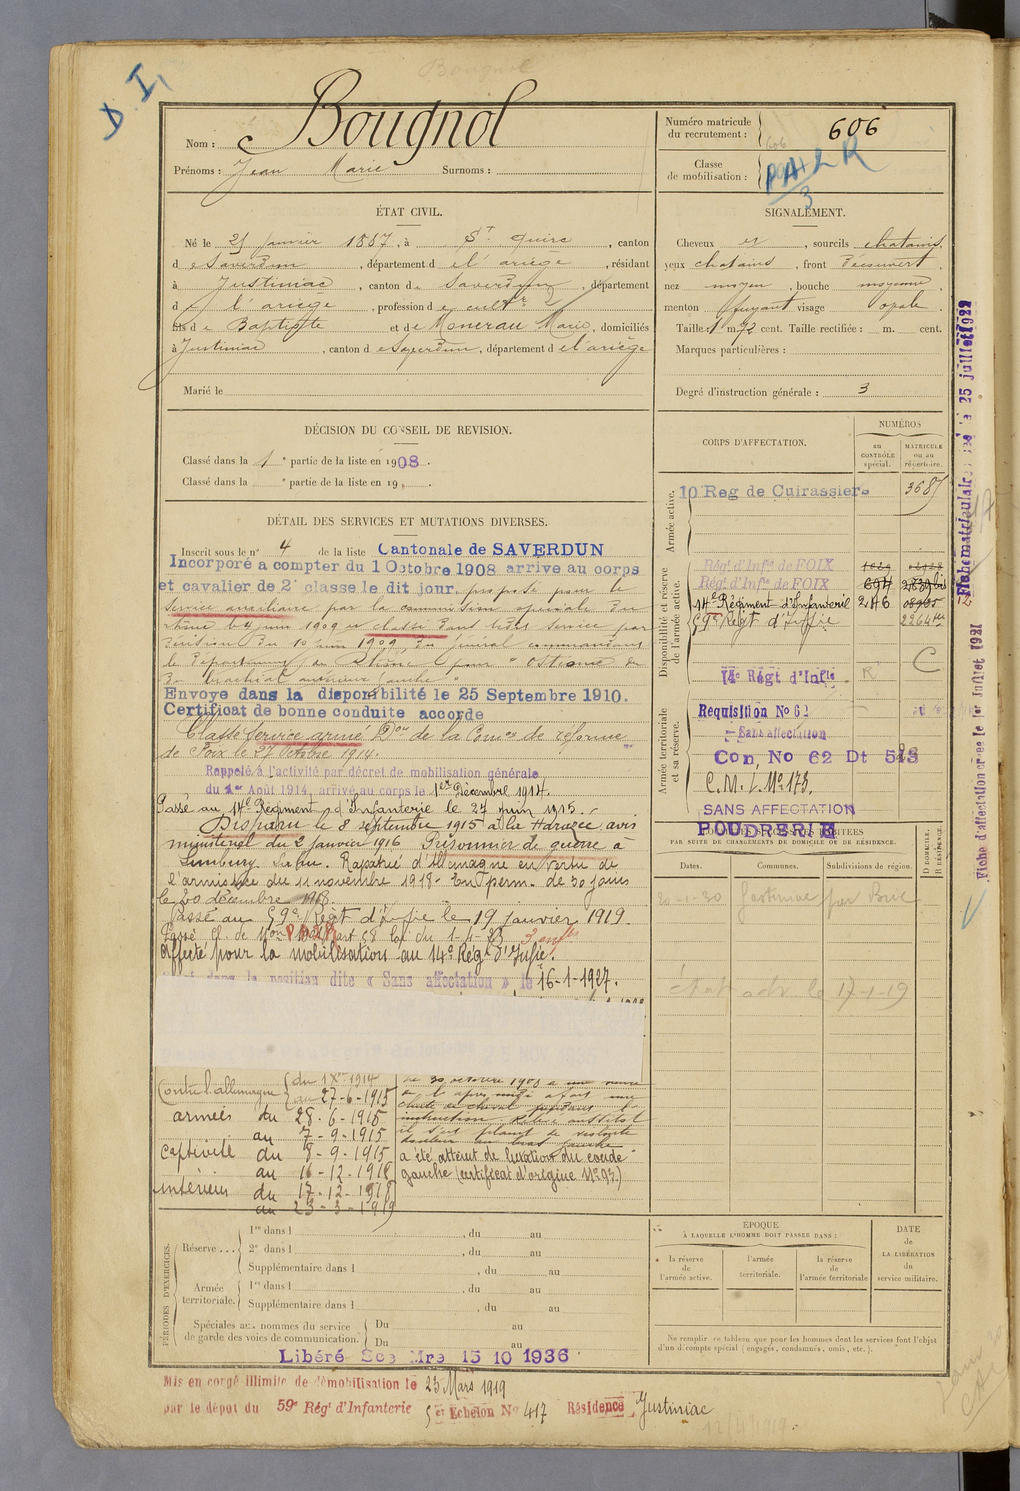 Bougnol
D. I.
Nom : Bougnol
Prénoms : Jean Marie Surnoms :
Numéro matricule du recrutement : 606
606
Classe de mobilisation :
3
ÉTAT CIVIL.
Né le 25 Janvier 1887, à St Quirc, canton
de Saverdun, département de l'ariège, résidant
à Justiniac, canton de Saverdun, département
de l'ariège, profession de cultr
fils de Baptiste et de Monerau Marie, domiciliés
à Justiniac, canton de Saverdun, département de l'ariège
Marié le
SIGNALEMENT.
Cheveux et, sourcils chatains,
yeux chatains, front Découvert,
nez moyen, bouche moyenne
menton fuyant visage ovale.
Taille : 1 m. 72 cent. Taille rectifiée : m. cent.
Marques particulières :
Degré d'instruction générale : 3
DÉCISION DU CONSEIL DE REVISION.
Classé dans la 1e partie de la liste en 1908.
Classé dans la e partie de la liste en 19 .
DÉTAIL DES SERVICES ET MUTATIONS DIVERSES.
Inscrit sous le n° 4 de la liste Cantonale de SAVERDUN
Incorporé a compter du 1 Octobre 1908 arrive au corps
et cavalier de 2e classe le dit jour, proposé pour le
service auxiliaire par la commission spéciale du
Rhône le juin 1909 et classé dans ledit service par
décision du 10 juin 1909, du général commandant
le Département du Rhône pour " Ostéome du
brachial antérieur gauche "
Envoye dans la disponibilité le 25 Septembre 1910.
Certificat de bonne conduite accorde
Classé service armé Don de la Comon de réforme
de Foix le 27 octobre 1914.
Rappelé à l'activité par décret de mobilisation générale
du 1er Août 1914, arrivé au corps le 1er Décembre 1914.
Passé au 14e Régiment d'Infanterie le 27 juin 1915.
Disparu le 8 septembre 1915 à la Harazée avis
ministériel du 2 janvier 1916 Prisonnier de guerre à
Limburg. Rapatrié d'Allemagne en vertu de
l'armistice du 11 novembre 1918. En perm. de 30 jours
le 20 décembre 1918.
Passé au 59e Régt d'Infie le 19 janvier 1919.
Passé Cl. de Mon art 58 loi du 1-4-23 3 enfts
Affecté pour la mobilisation au 14e Régt d'Infie.
dans la position dite « Sans affectation » le 16-1-1927.
Contre l'allemagne du 1 Xbre 1914
au 27-6-1915
armées du 28-6-1915
au 7-9-1915
captivité du 8-9-1915
au 16-12-1918
intérieur du 17-12-1918
au 23-3-1919
instruction
a été atteint de luxation du coude
gauche (certificat d'origine No 93)
CORPS D'AFFECTATION.
NUMÉROS
au CONTRÔLE spécial.
MATRICULE ou au répertoire.
Armée active.
10 Reg de Cuirassiers 3685
Disponibilité et réserve de l'armée active.
Régt d'Infie de FOIX
Régt d'Infie de FOIX 694
14e Régiment d'Infanterie 246
59e Régt d'Infie
14e Régt d'Infie R C
Armée territoriale et sa réserve.
Requisition No 62
Sans affectation
Con, No 62 Dt 513
C.M.L. No 173.
SANS AFFECTATION
POUDRERIE
PAR SUITE DE CHANGEMENTS DE DOMICILE OU DE RÉSIDENCE.
Dates. Communes. Subdivisions de région. D DOMICILE. R RÉSIDENCE.
20-1-30 Justiniac
17-1-19
PÉRIODES D'EXERCICES.
Réserve ... 1re dans l , du au
2e dans l , du au
Supplémentaire dans l , du au
Armée territoriale. 1re dans l , du au
Supplémentaire dans l , du au
Spéciales aux hommes du service de garde des voies de communication. Du au
Du au
ÉPOQUE
À LAQUELLE L'HOMME DOIT PASSER DANS :
la réserve de l'armée active.
l'armée territoriale.
la réserve de l'armée territoriale
DATE de LA LIBÉRATION du service militaire.
Ne remplir ce tableau que pour les hommes dont les services font l'objet
d'un décompte spécial (engagés, condamnés, omis, etc.).
Libéré Sce Mre 15 10 1936
Mis en congé illimité de démobilisation le 23 Mars 1919
par le dépot du 59e Rég' d'Infanterie 5e Echelon No 417 Résidence Justiniac
Fiche matriculaire le 25 juillet 1922
Fiche d'affectation créée le 1er Juillet 1921